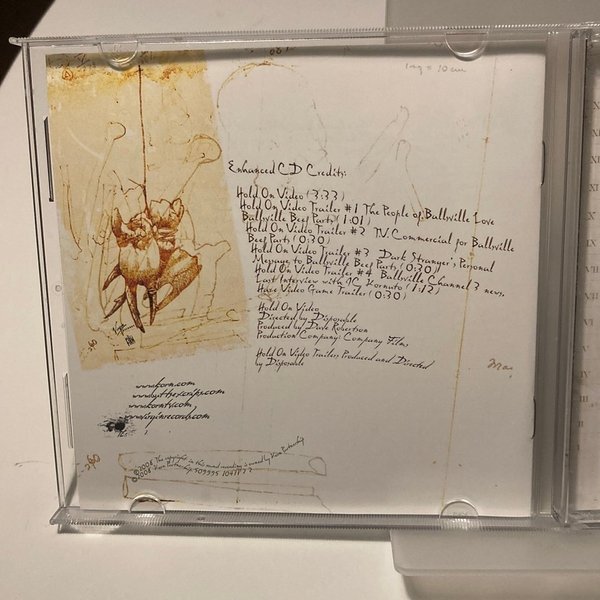 1 sq = 10 cm
Enhanced CD Credits:
Hold On Video (3:33)
Hold On Video Trailer #1 The People of Ballsville Love
Ballsville Beef Parts (1:01)
Hold On Video Trailer #2 TV Commercial for Ballsville
Beef Parts (0:30)
Hold On Video Trailer #3 Dark Stranger's Personal
Message to Ballsville Beef Parts (0:30)
Hold On Video Trailer #4 Ballsville Channel 3 news,
Last Interview with JC Kornuto (1:12)
Haze Video Game Trailer (0:30)
Hold On Video
Directed by Disposable
Produced by Dave Robertson
Production Company: Company Films
Hold On Video Trailers Produced and Directed
by Disposable
www.korn.com
www.kornt.com
www.virginrecords.com
©2008 The copyright in this sound recording is owned by
©2008